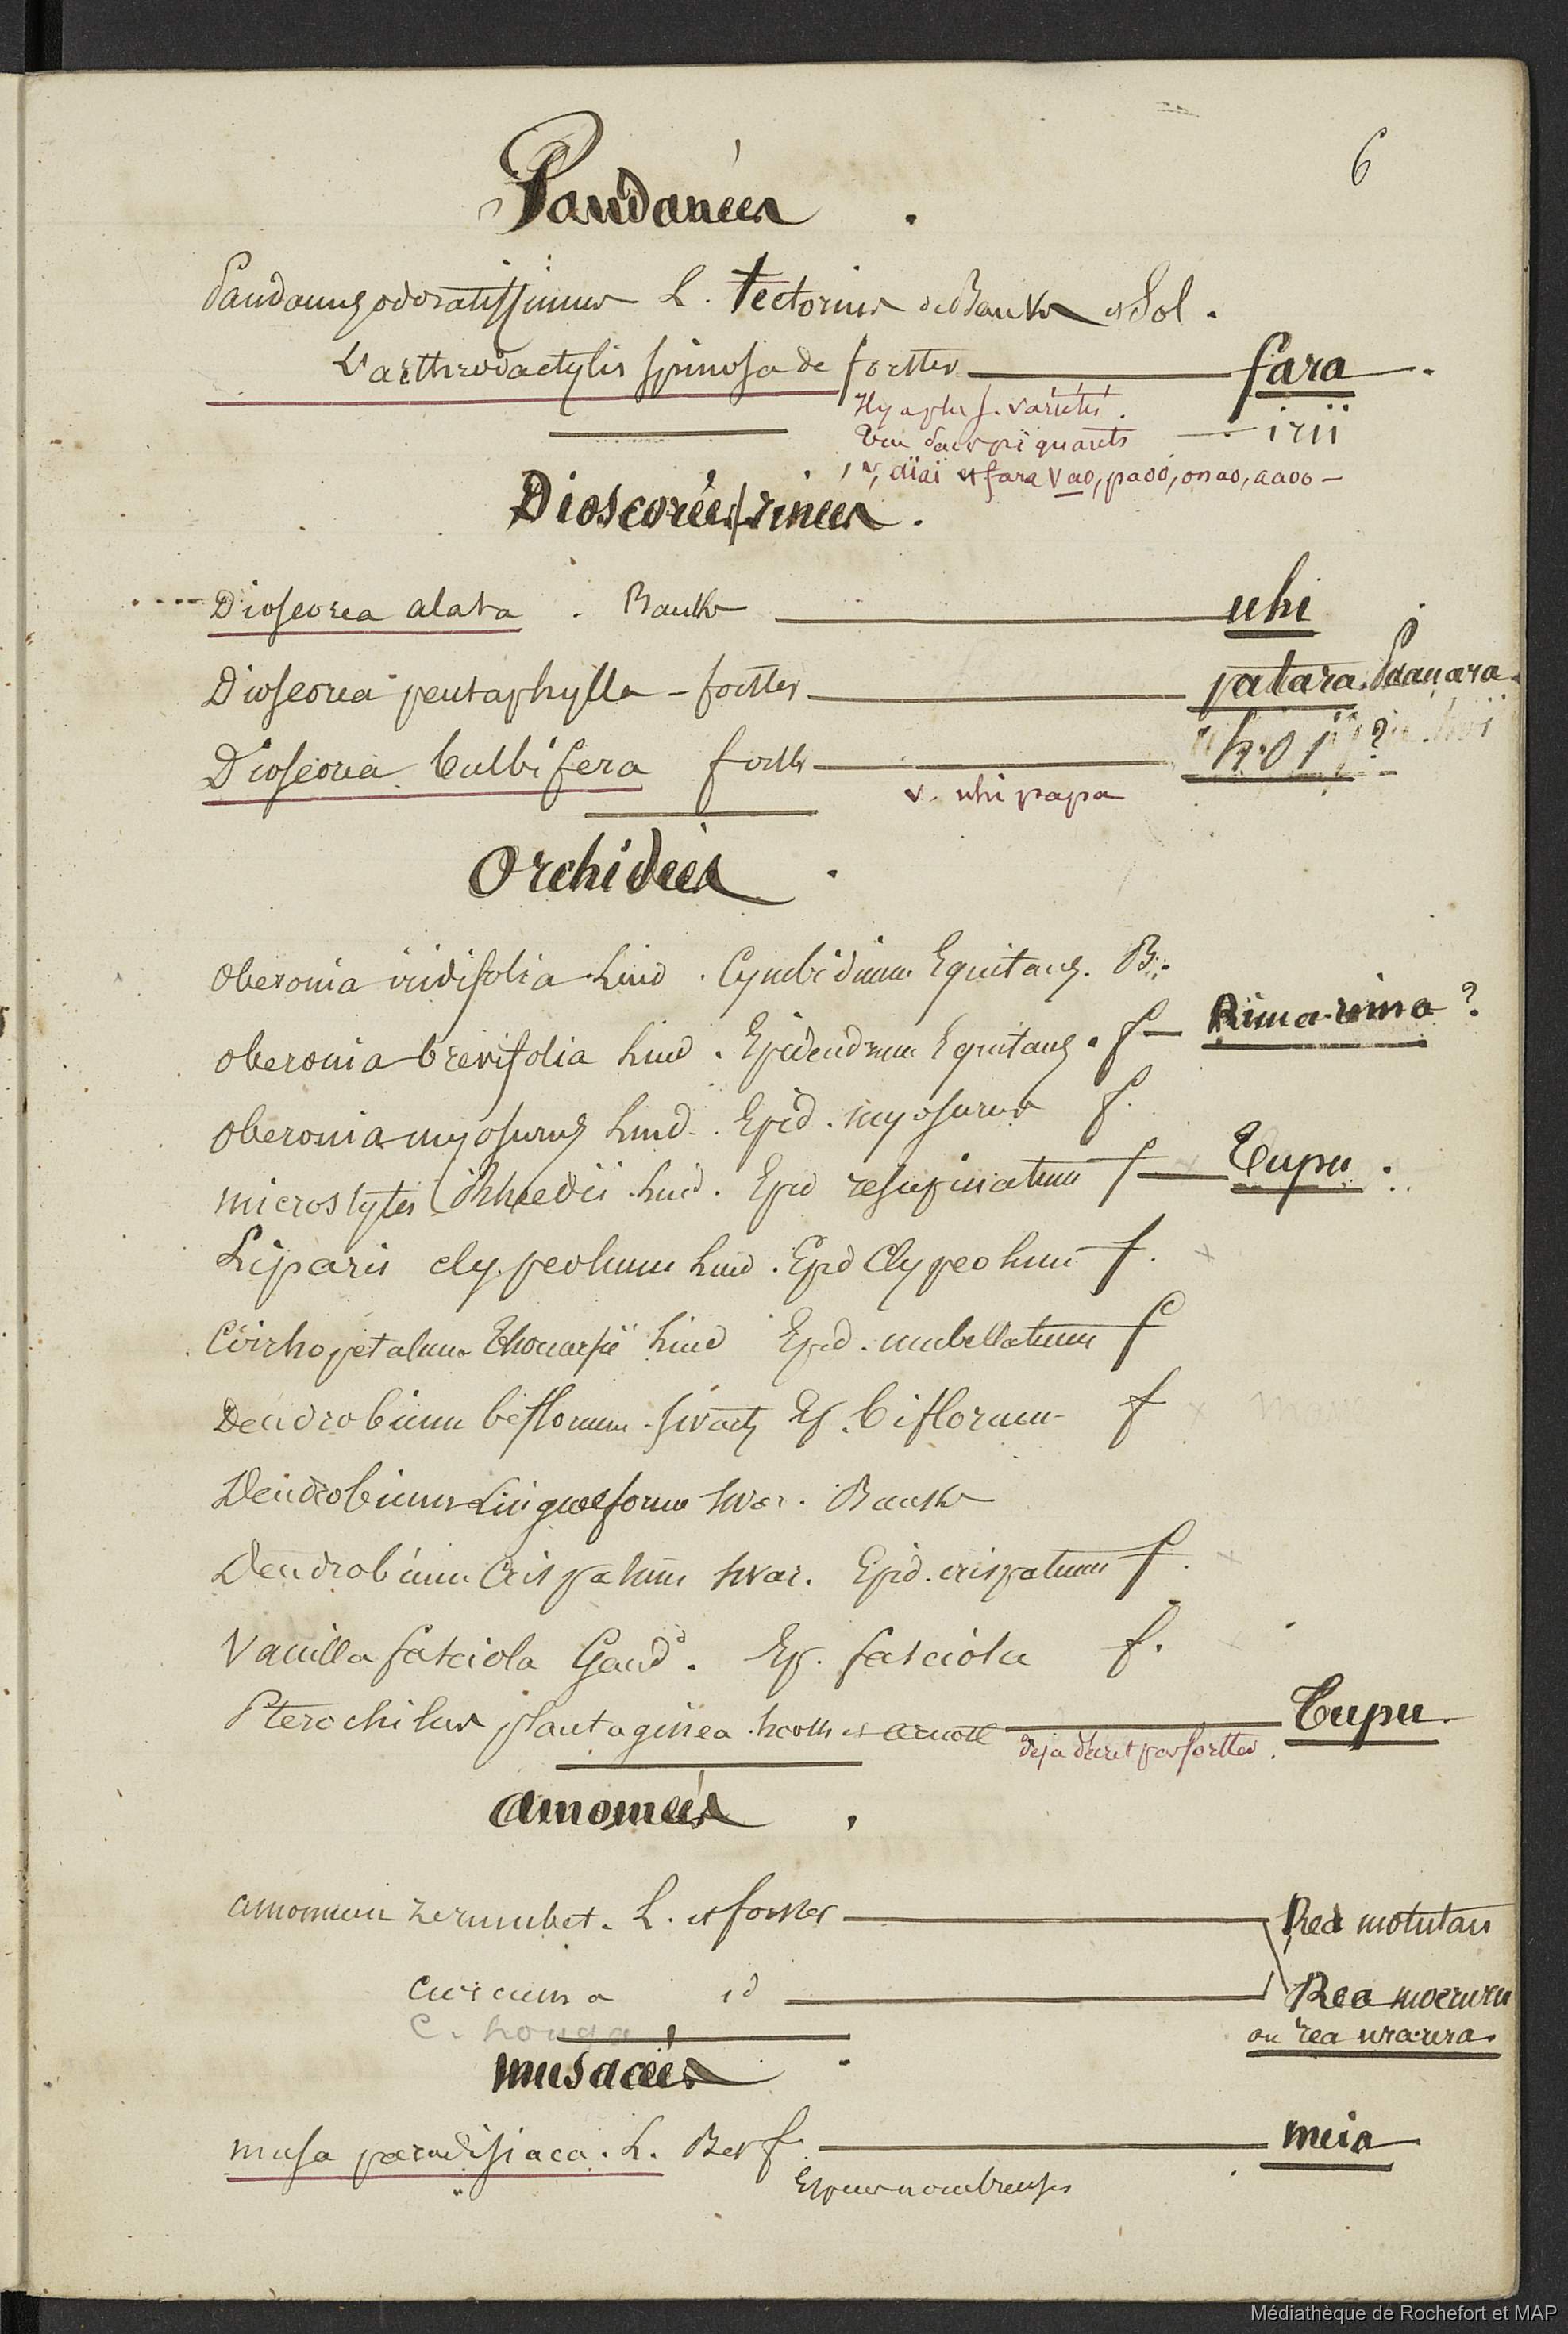 6
Pandanées
Pandanus odoratissimus L. Tectorius de Banks et Sol.
L'arthrodactylis spinosa de forster — fara
Il y a plus. f. variétés.
Une sans piquants — irii
v, aïai et fara vao, paoo, onao, aaoo —
Dioscorées/rinées.
Dioscorea alata . Banks — uhi
Dioscorea pentaphylla - forster — patara. Paauara.
Dioscorea bulbifera forst — hoi ?
v. uhi papa
Orchidées
Oberonia iridifolia Lind . Cymbidium Equitans. B.
Oberonia brevifolia Lind . Epidendrum Equitans . f — Rima-rima ?
Oberonia myosurus Lind. Epid. myosurus f.
microstyles Rheedii Lind. Epid resupinatum f — Tupu .
Liparis clypeolum Lind . Epid Clypeolum f.
Cirrhopetalum Thouarsii Lind Epid. umbellatum f
Dendrobium biflorum Swartz Ep. biflorum f
Dendrobium Linguaeforme Swar. Banks
Dendrobium Crispatum Swar. Epid. crispatum f.
Vanilla fasciola Gaud. Ep. fasciola f.
Pterochilus plantaginea hook et arnott — Tupu.
deja décrit par forster.
amomées
amomum zerumbet. L. et forster — Rea motutau
Curcuma id — Rea moeruru
ou rea uraura.
C. houga
musacées
musa paradisiaca. L. B et f. — meia
Espèces nombreuses
Médiathèque de Rochefort et MAP